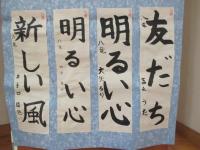 友だち
明るい心
明るい心
新しい風